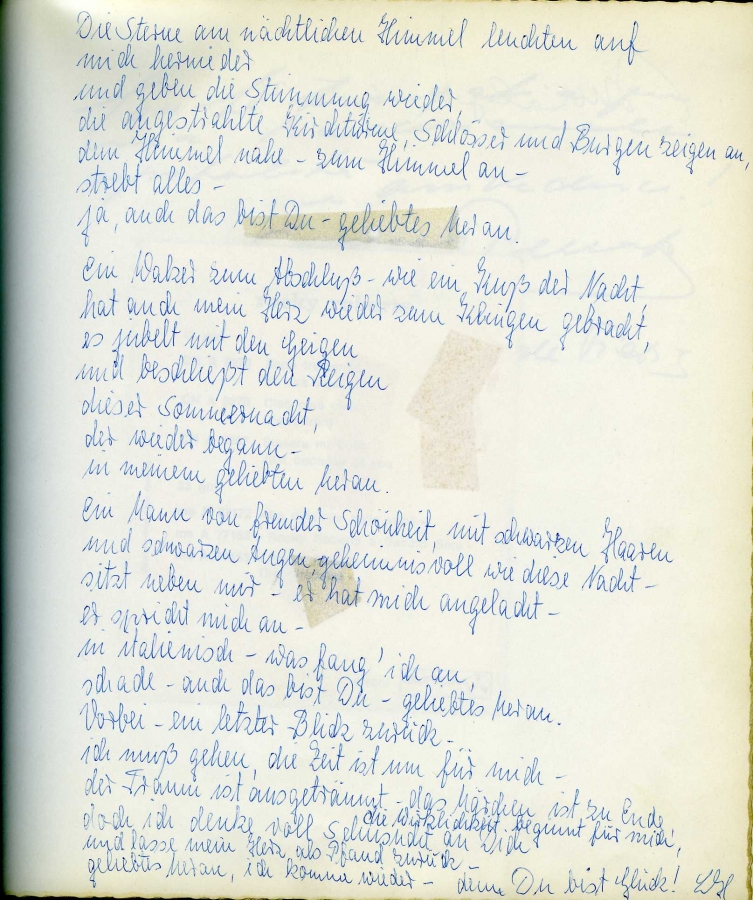 Die Sterne am nächtlichen Himmel leuchten auf
mich hernieder
und geben die Stimmung wieder,
die angestrahlte Kirchtürme, Schlösser und Burgen zeigen an,
dem Himmel nahe - zum Himmel an -
strebt alles -
ja, auch das bist Du - geliebtes Meran.
Ein Walzer zum Abschluß - wie ein Kuß der Nacht,
hat auch mein Herz wieder zum Klingen gebracht,
es jubelt mit den Geigen
und beschließt den Reigen
dieser Sommernacht,
der wieder begann -
in meinem geliebten Meran.
Ein Mann von fremder Schönheit, mit schwarzen Haaren
und schwarzen Augen, geheimnisvoll wie diese Nacht -
sitzt neben mir - er hat mich angelacht -
er spricht mich an -
in italienisch - was fang' ich an,
schade - auch das bist Du - geliebtes Meran.
Vorbei - ein letzter Blick zurück -
ich muß gehen, die Zeit ist um für mich -
der Traum ist ausgeträumt - das Märchen ist zu Ende
die Wirklichkeit beginnt für mich,
doch ich denke voll Sehnsucht an Dich
und lasse mein Herz als Pfand zurück -
geliebtes Meran, ich komme wieder - denn Du bist Glück!